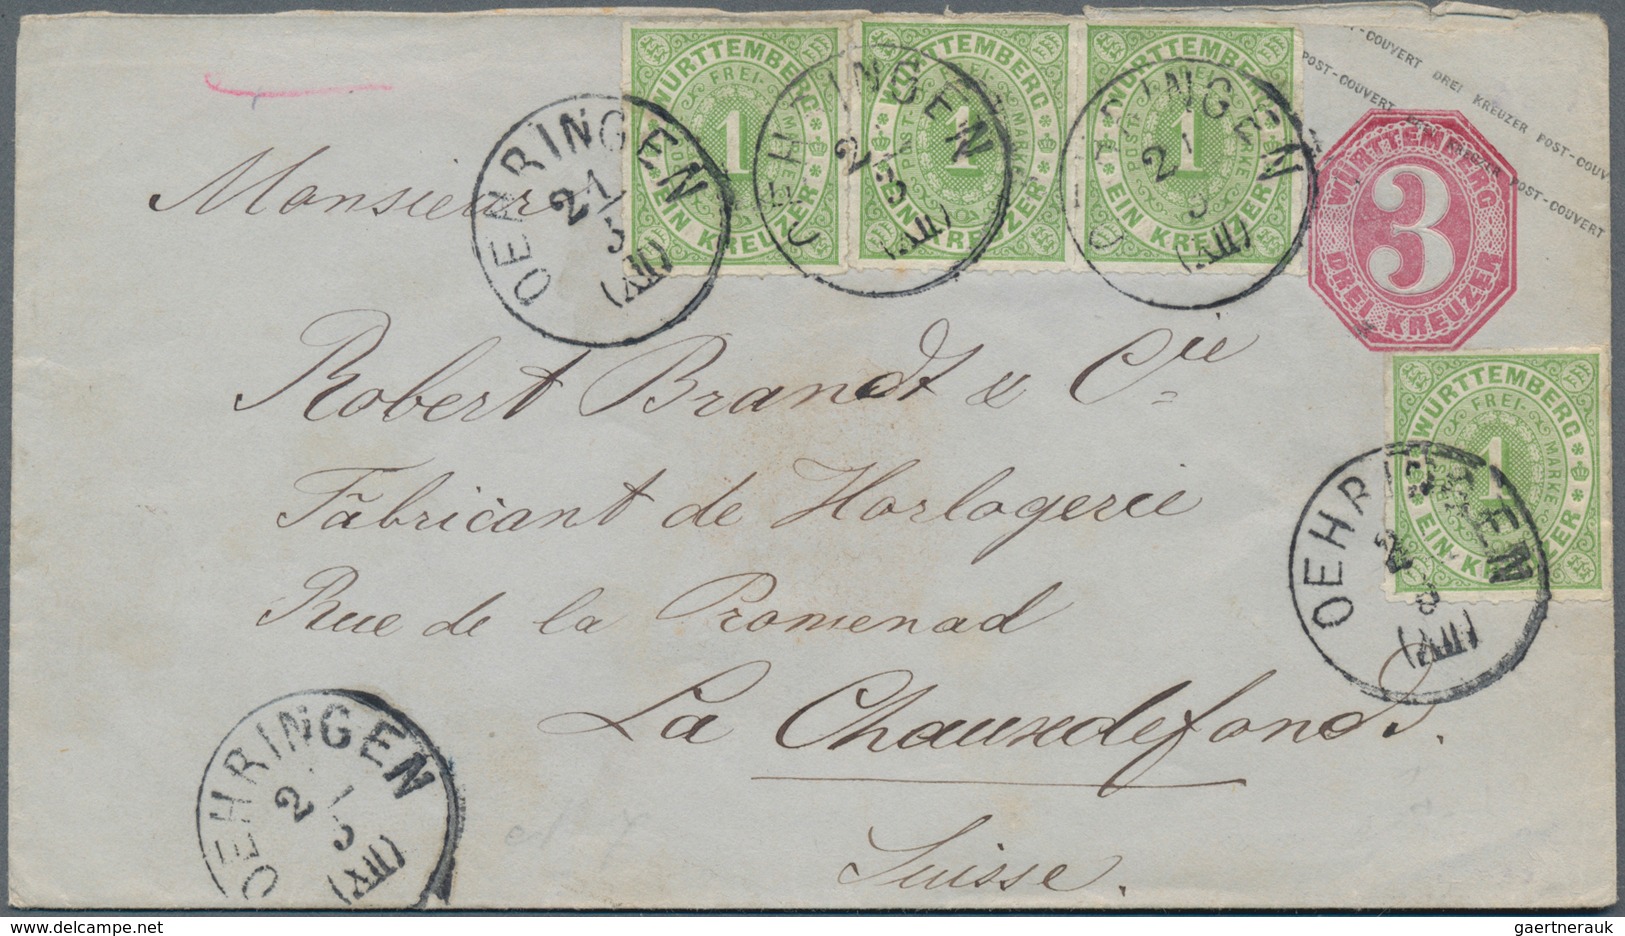 WÜRTTEMBERG
FREI-
POST-
MARKE
1
EIN KREUZER
WÜRTTEMBERG
FREI-
POST-
MARKE
1
EIN KREUZER
WÜRTTEMBERG
POST-
MARKE
1
EIN KREUZER
POST-COUVERT DREI KREUZER POST-COUV
POST-COUVERT DREI KREUZER POST-COUVERT
WÜRTTEMBERG
3
DREI KREUZER
OEHRINGEN
21
5
(XII)
OEHRINGEN
2
5
(XII)
OEHRINGEN
21
5
(XII)
Monsieur
Robert Brandt & Cie
WÜRTTEMBERG
FREI-
MARKE
1
EIN KREUZER
Fabricant de Horlogerie
OEHRINGEN
2
5
(XII)
Rue de la Promenad
La Chauxdefonds.
Suisse.
OEHRINGEN
21
5
(XII)
gaertnerauk